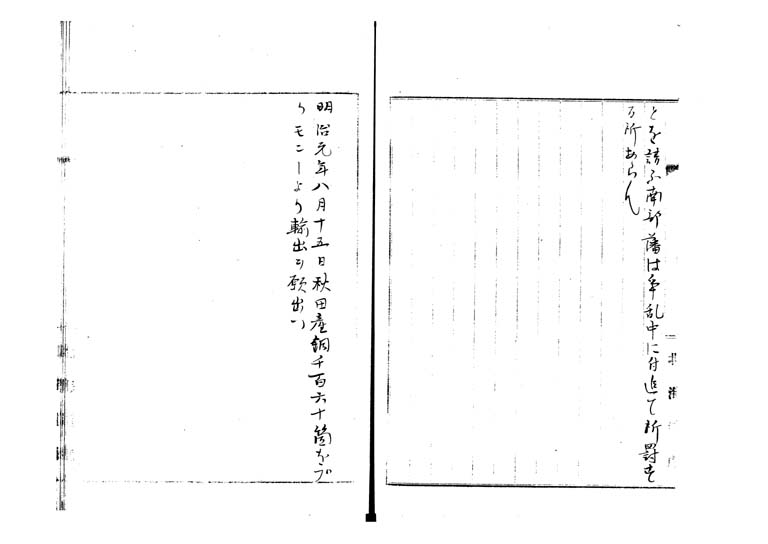 とを請ふ南部藩は争乱中に付追て所罰す
る所あらん
明治元年八月十五日秋田産銅千百六十箇をブ
リモニーより輸出ヲ願出ツ